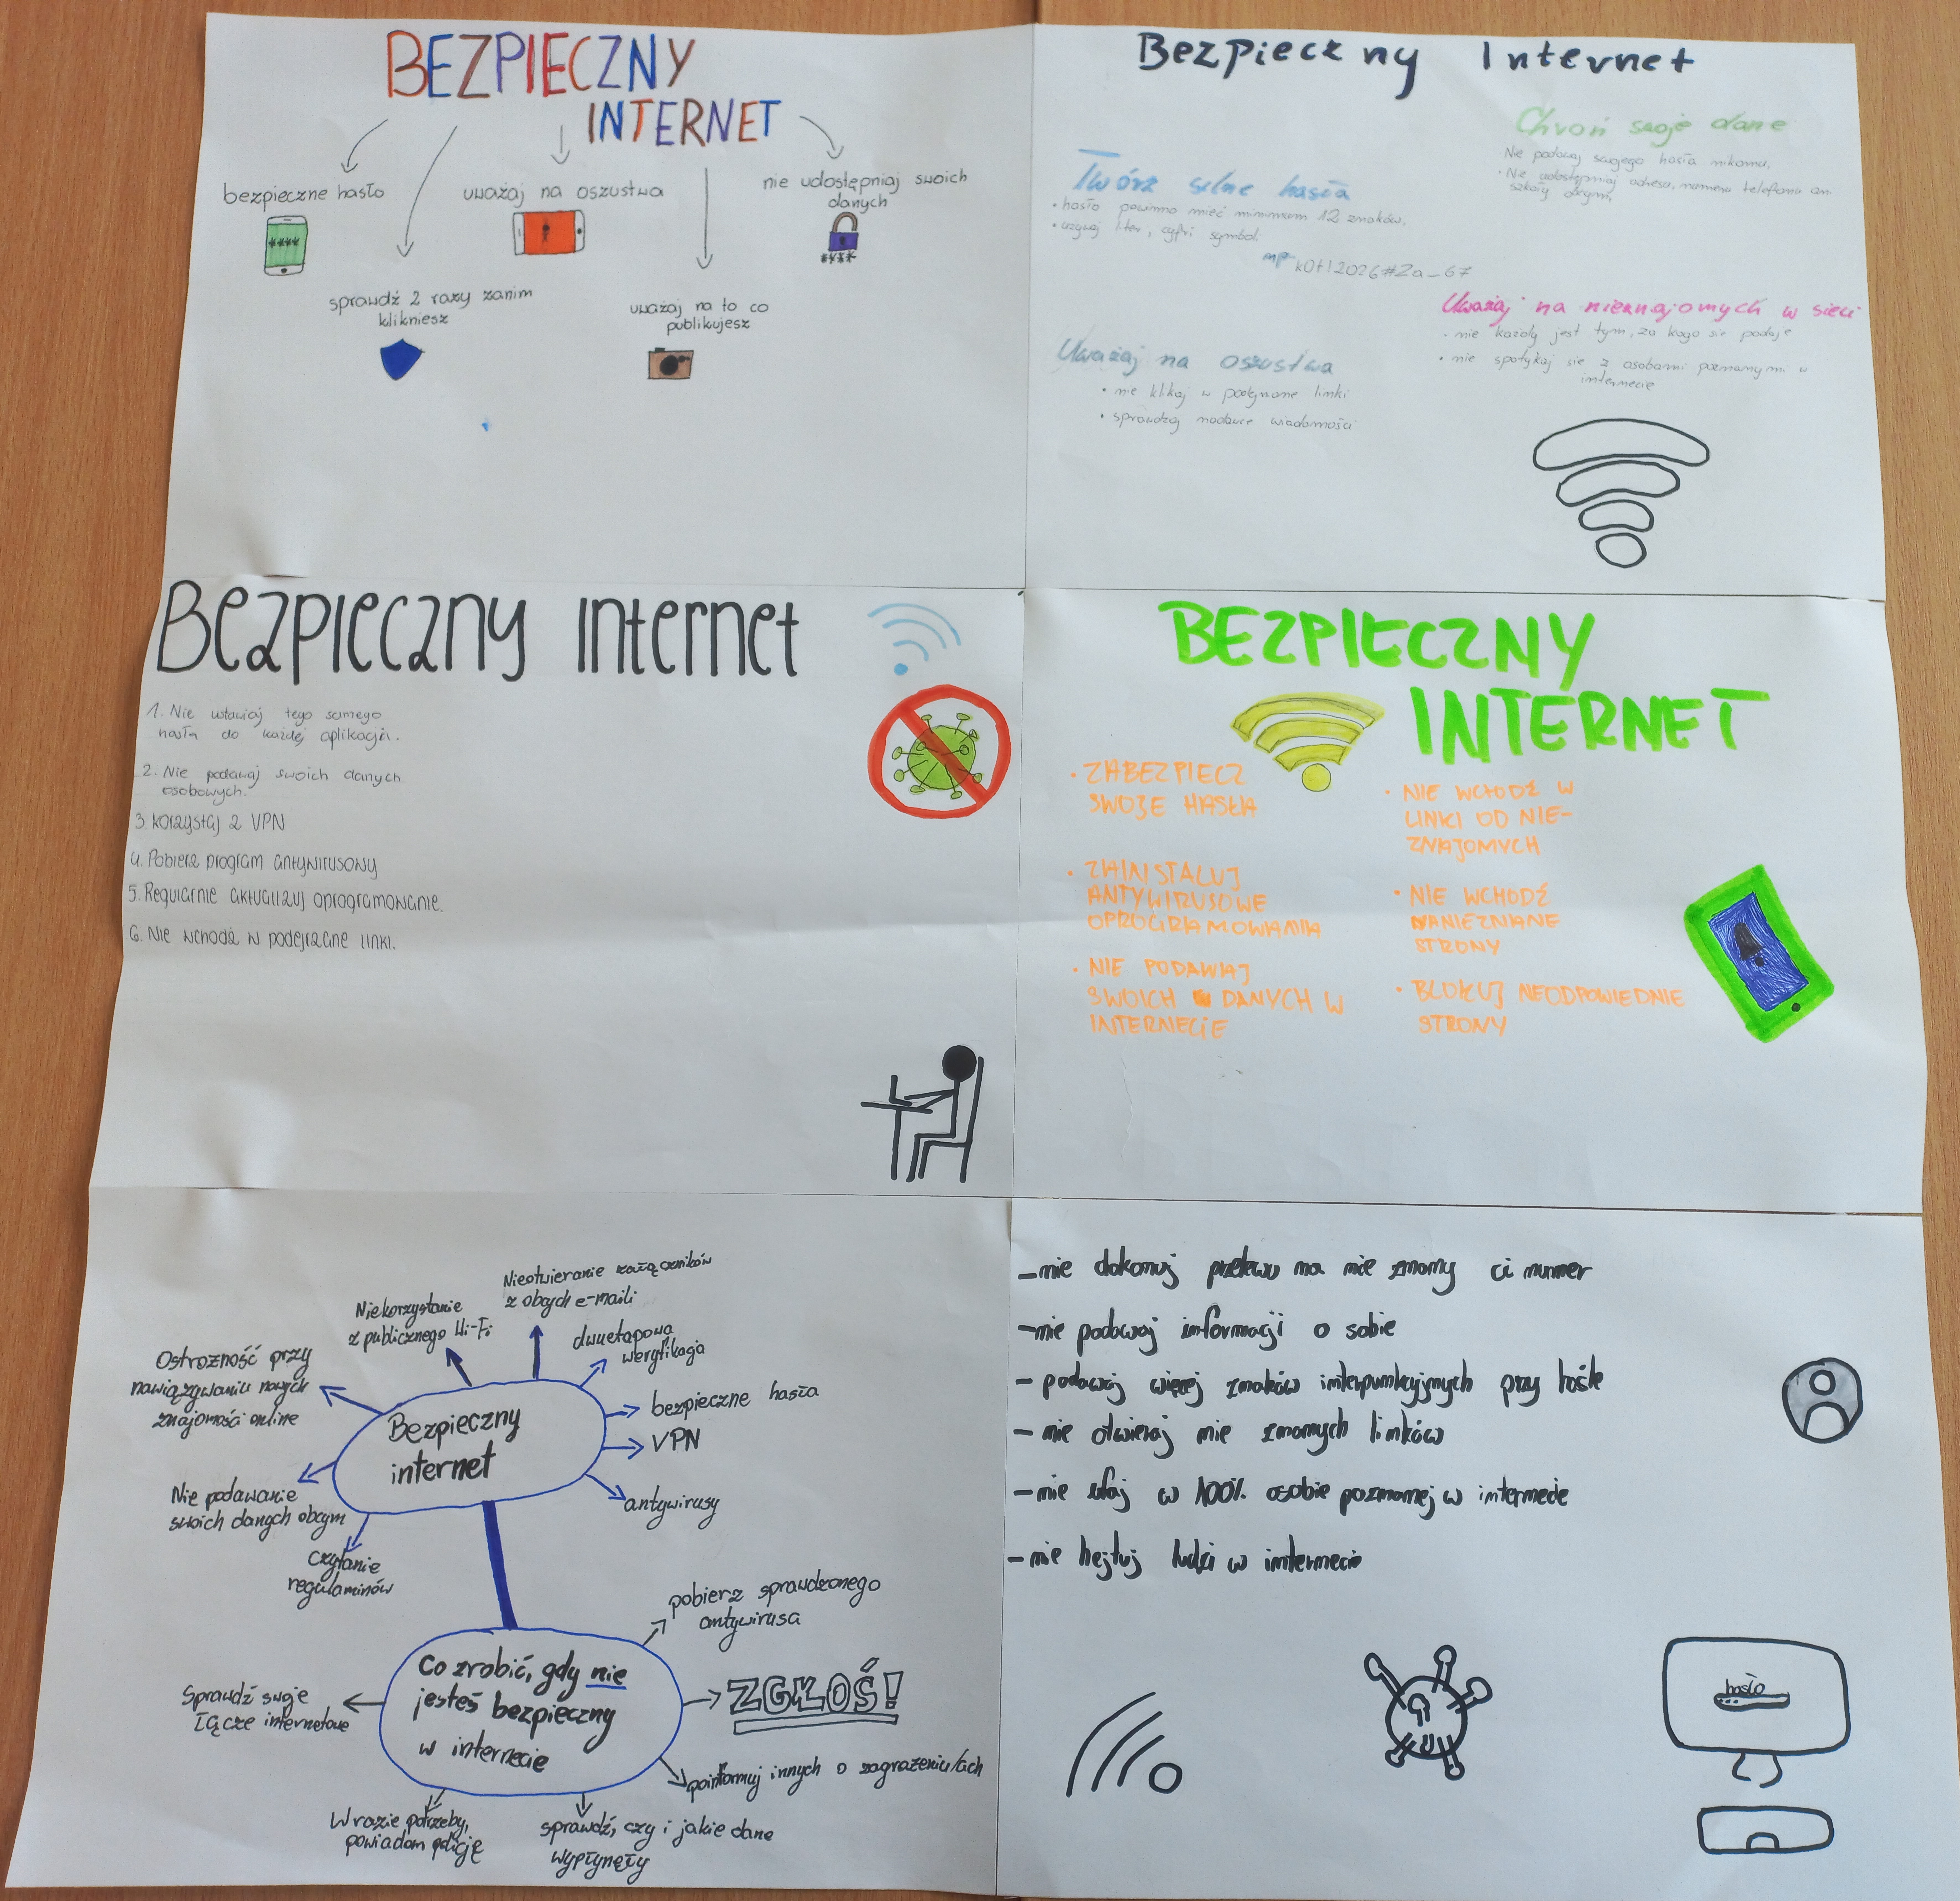 BEZPIECZNY
INTERNET
bezpieczne hasło
****
uważaj na oszustwa
nie udostępniaj swoich
danych
****
sprawdź 2 razy zanim
klikniesz
uważaj na to co
publikujesz
Bezpieczny Internet
Chroń swoje dane
Nie podawaj swojego hasła nikomu,
• Nie udostępniaj adresu, numeru telefonu ani
szkoły obcym,
Twórz silne hasła
• hasło powinno mieć minimum 12 znaków,
• używaj liter, cyfr i symbol.
np k0t!2026#Za_67
Uważaj na nieznajomych w sieci
• nie każdy jest tym, za kogo się podaje
• nie spotykaj się z osobami poznanymi w
internecie
Uważaj na oszustwa
• nie klikaj w podejrzane linki
• sprawdzaj nadawce wiadomości
Bezpieczny Internet
1. Nie ustawiaj tego samego
hasła do każdej aplikacji.
2. Nie podawaj swoich danych
osobowych.
3. Korzystaj z VPN
4. Pobierz program antywirusowy
5. Regularnie aktualizuj oprogramowanie.
6. Nie wchodź w podejrzane linki.
BEZPIECZNY
INTERNET
• ZABEZPIECZ
SWOJE HASŁA
• ZAINSTALUJ
ANTYWIRUSOWE
OPROGRAMOWANIA
• NIE PODAWAJ
SWOICH DANYCH W
INTERNECIE
• NIE WCHODŹ W
LINKI OD NIE-
ZNAJOMYCH
• NIE WCHODŹ
NANIEZNANE
STRONY
• BLOKUJ NEODPOWIEDNIE
STRONY
Nieotwieranie załączników
z obcych e-maili
Niekorzystanie
z publicznego Wi-Fi
dwuetapowa
weryfikacja
Ostrożność przy
nawiązywaniu nowych
znajomości online
bezpieczne hasła
VPN
antywirusy
Bezpieczny
internet
Nie podawanie
swoich danych obcym
czytanie
regulaminów
pobierz sprawdzonego
antywirusa
Co zrobić, gdy nie
jesteś bezpieczny
w internecie
ZGŁOŚ!
Sprawdź swoje
łącze internetowe
poinformuj innych o zagrożeniu/ach
W razie potrzeby,
powiadom policję
sprawdź, czy i jakie dane
wypłynęły
-nie dokonuj przelewu na nie znany ci numer
-nie podawaj informacji o sobie
- podawaj więcej znaków interpunkcyjnych przy haśle
- nie otwieraj nie znanych linków
- nie ufaj w 100% osobie poznanej w internecie
- nie hejtuj ludzi w internecie
hasło